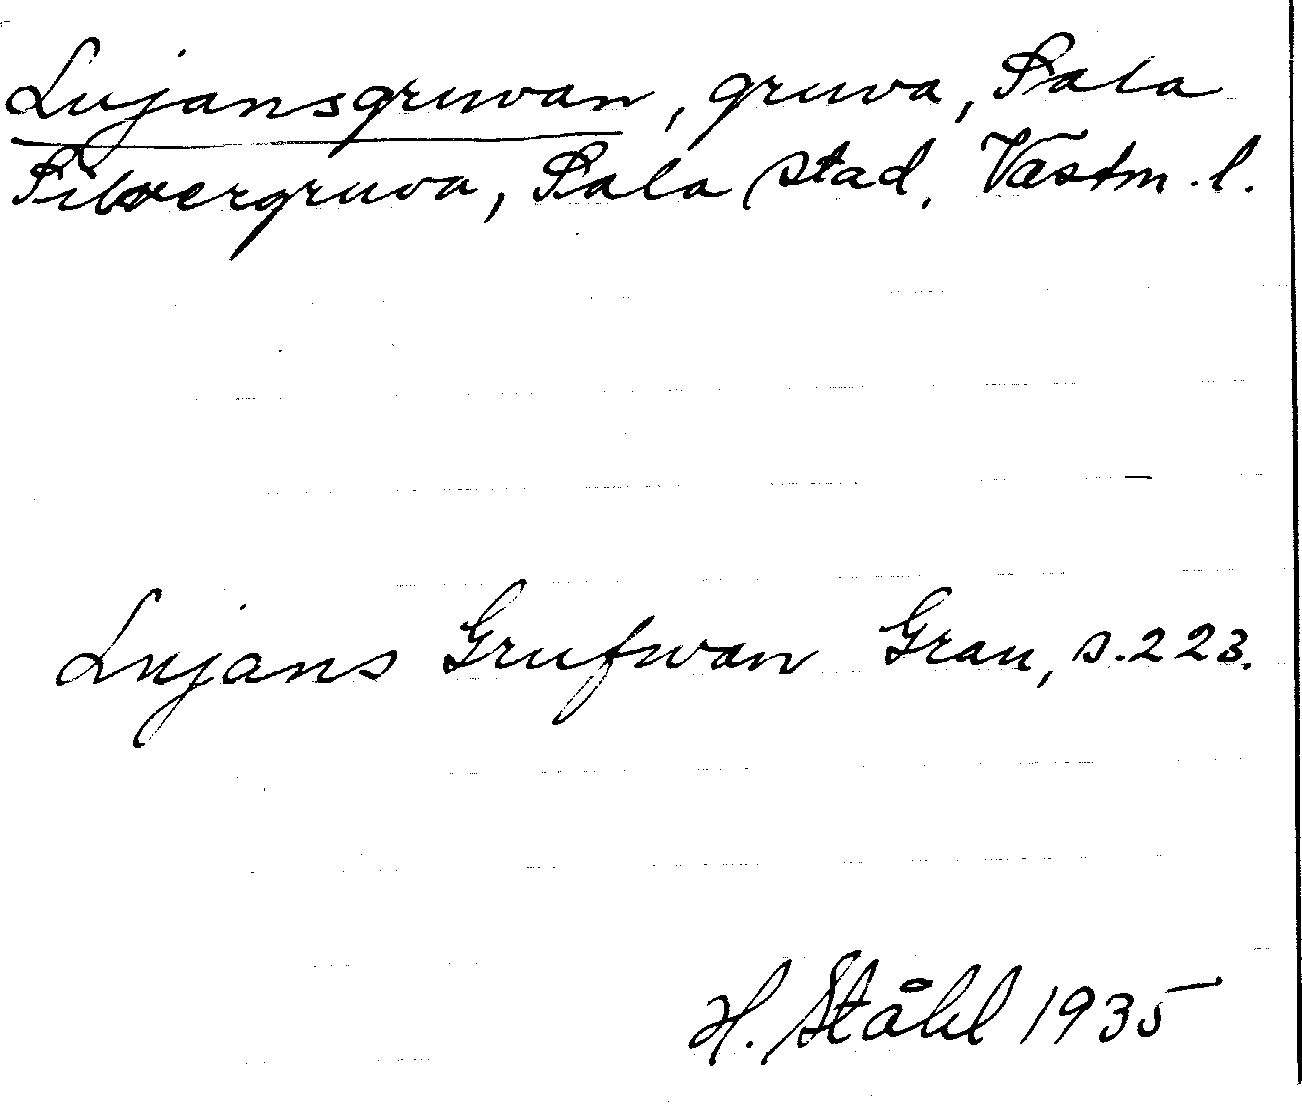 Lujansgruvan, gruva, Sala
Silvergruva, Sala stad, Västm. l.
Lujans Grufwan Grau, s. 223.
H. Ståhl 1935